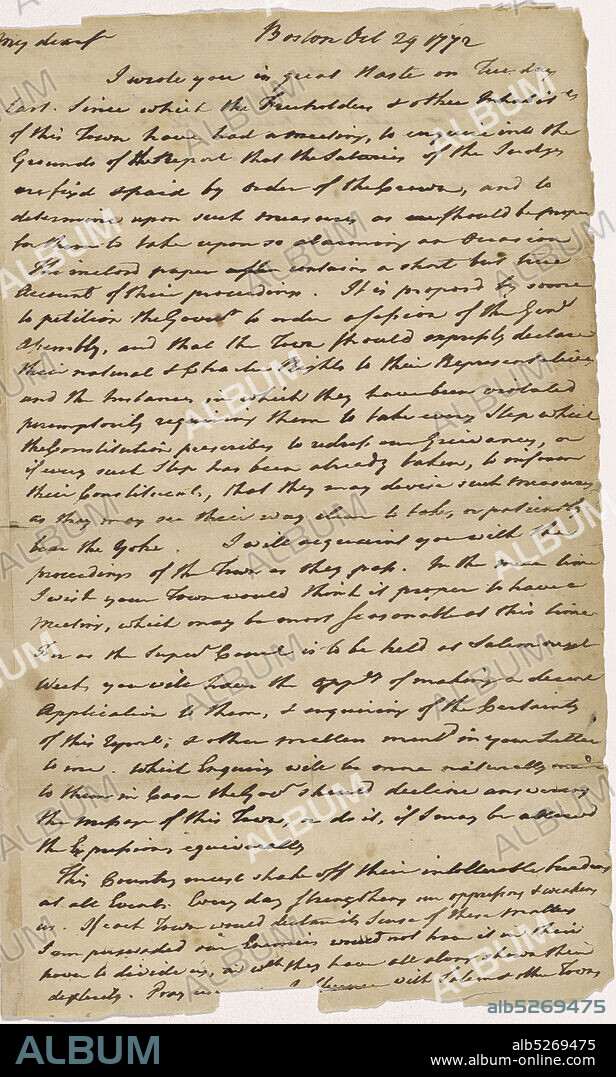 My dear Sir Boston Oct 29 1772
I wrote you in great Haste on Tuesday
last. Since which the Freeholders & other Inhabits
of this Town have had a meeting, to enquire into the
Grounds of the Report that the Salaries of the Judges
are fixd & paid by order of the Crown, and to
determine upon such measures as should be proper
for them to take upon so alarming an Occasion
The inclosd paper contains a short but true
Account of their proceedings. It is proposd by some
to petition the Govr to order a session of the Genl
Assembly, and that the Town should expressly declare
their natural & Charter Rights to their Representatives
and the Instances in which they have been violated
peremptorily requiring them to take every Step which
the Constitution prescribes to redress our Grievances, or
if every such Step has been already taken, to inform
their Constituents, that they may devise such measures
as they may see their way clear to take, or patiently
bear the Yoke. I will acquaint you with the
proceedings of the Town as they pass. In the mean time
I wish your Town would think it proper to have a
Meeting, which may be most seasonable at this time
For as the Superr Court is to be held at Salem next
Week, you will have the oppy of making a decent
Application to them, & enquiring of the Certainty
of this report; & other matters mentd in your Letter
to me. Which Enquiry will be more naturally made
to them in Case the Govr should decline answering
the message of this Town, or do it, if I may be allowed
the Expression, equivocally
This Country must shake off their intollerable burdens
at all Events. Every day strengthens our oppressors & weakens
us. If each Town would declare its Sense of these Matters
I am perswaded our Enemies would not have it in their
power to divide us, in wch they have all along shown their
dexterity. Pray with Salem & other Towns
ALBUM
alb5269475
ALBUM
alb5269475
www.album-online.com